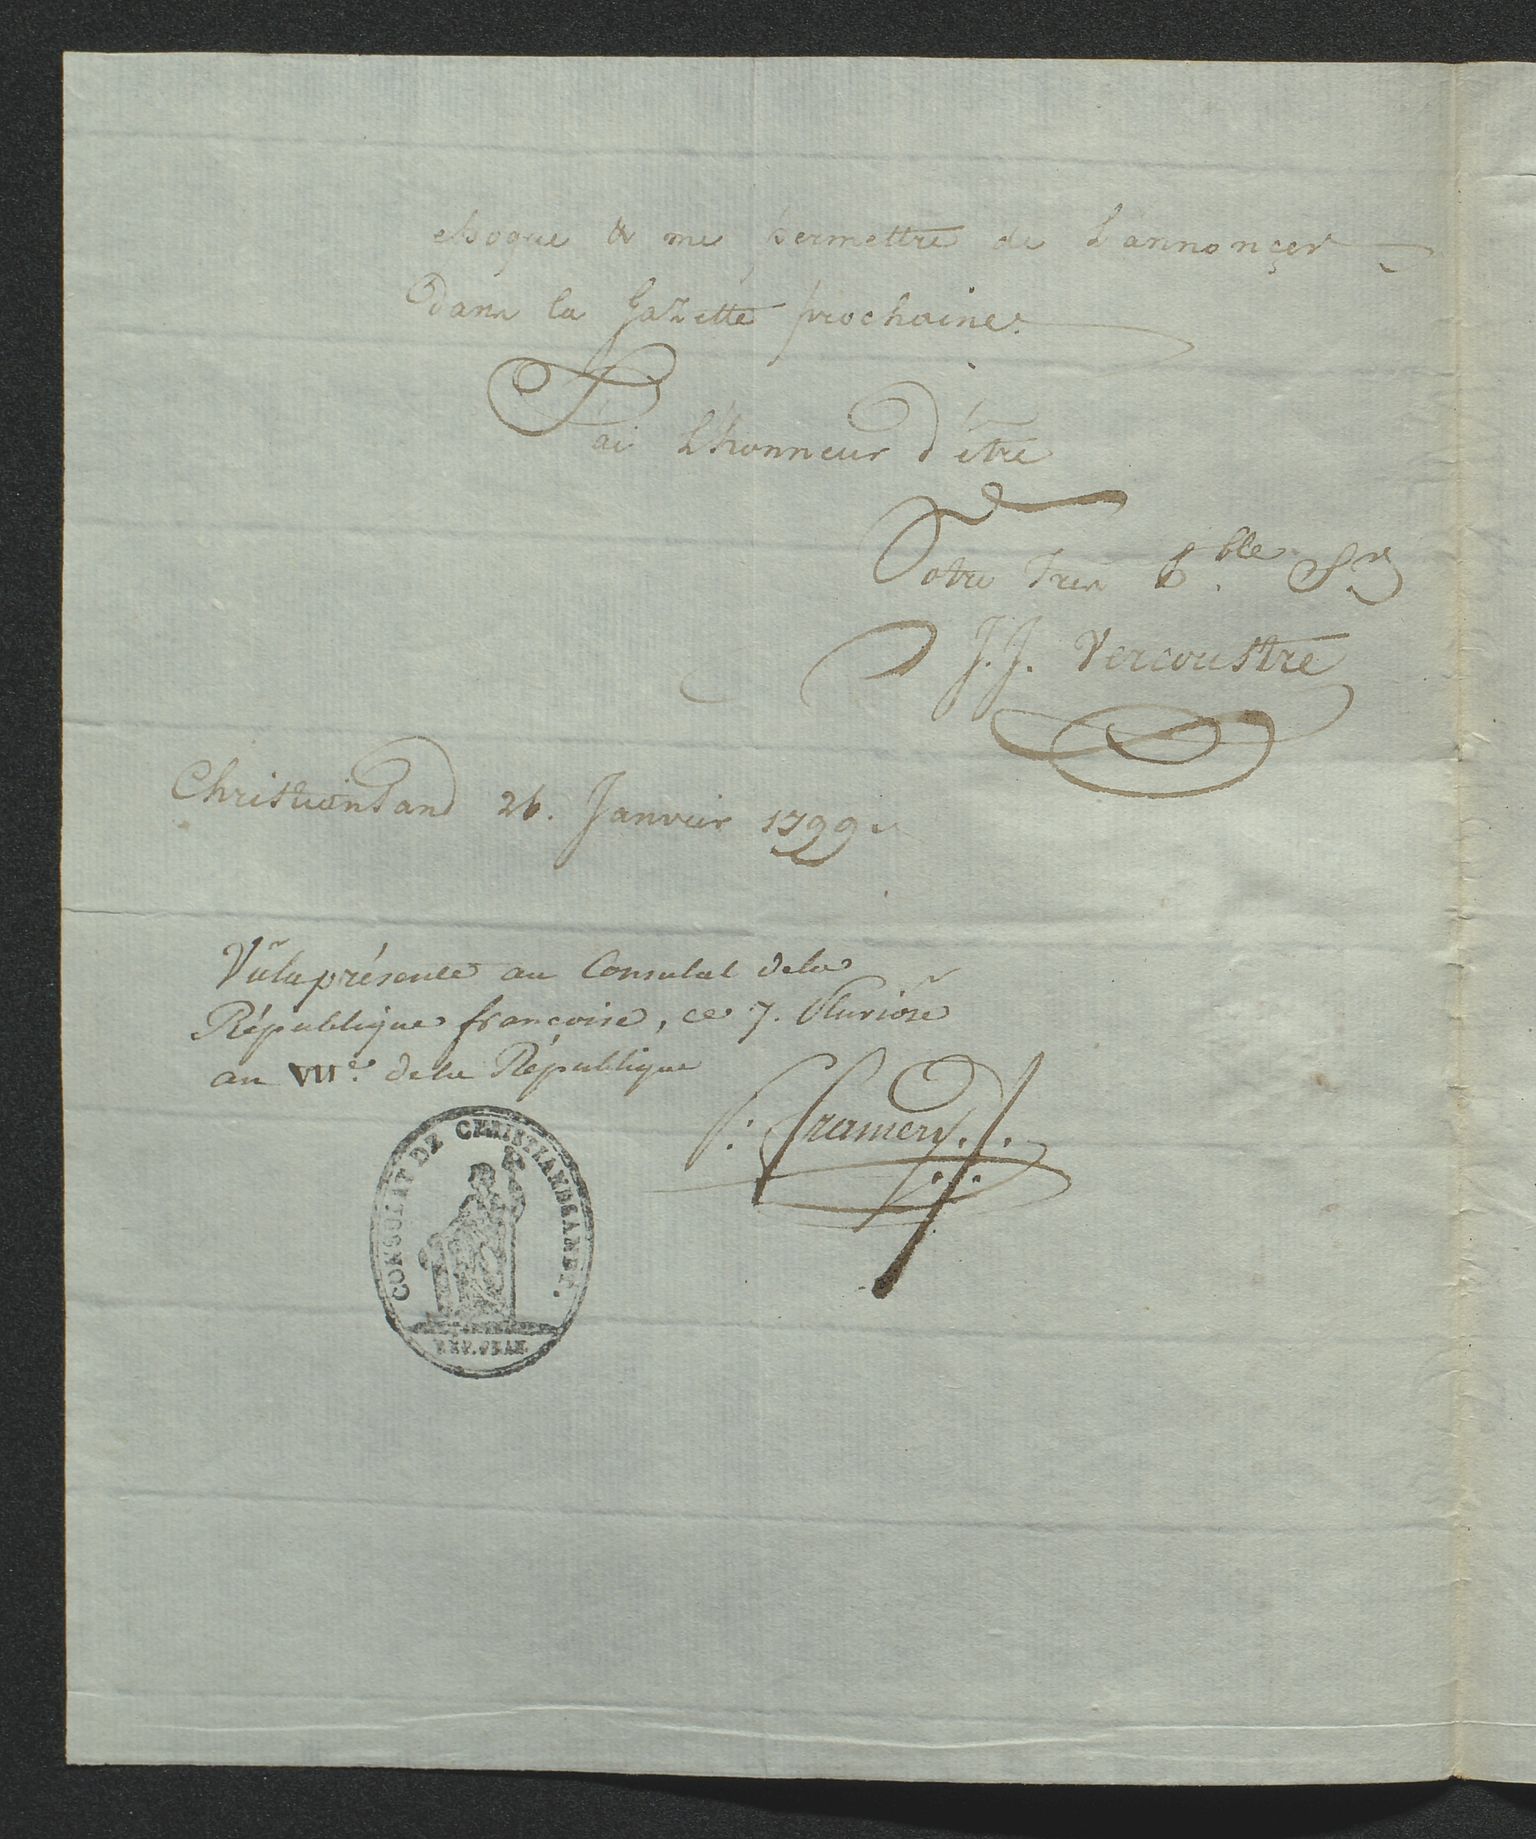 époque & me permettre de L'annonçer
Dans la Gazette prochaine.
J'ai L'honneur d'être
Votre Tres h.ble S.r
J. J. Vercoustre
Christiansand 26. Janvier 1799.
Vu la présente au Consulat de la
République françoise, ce 7. Pluviôse
an VII.e de la République
Framery
CONSULAT DE CHRISTIANSANDE.
REP. FRAN.